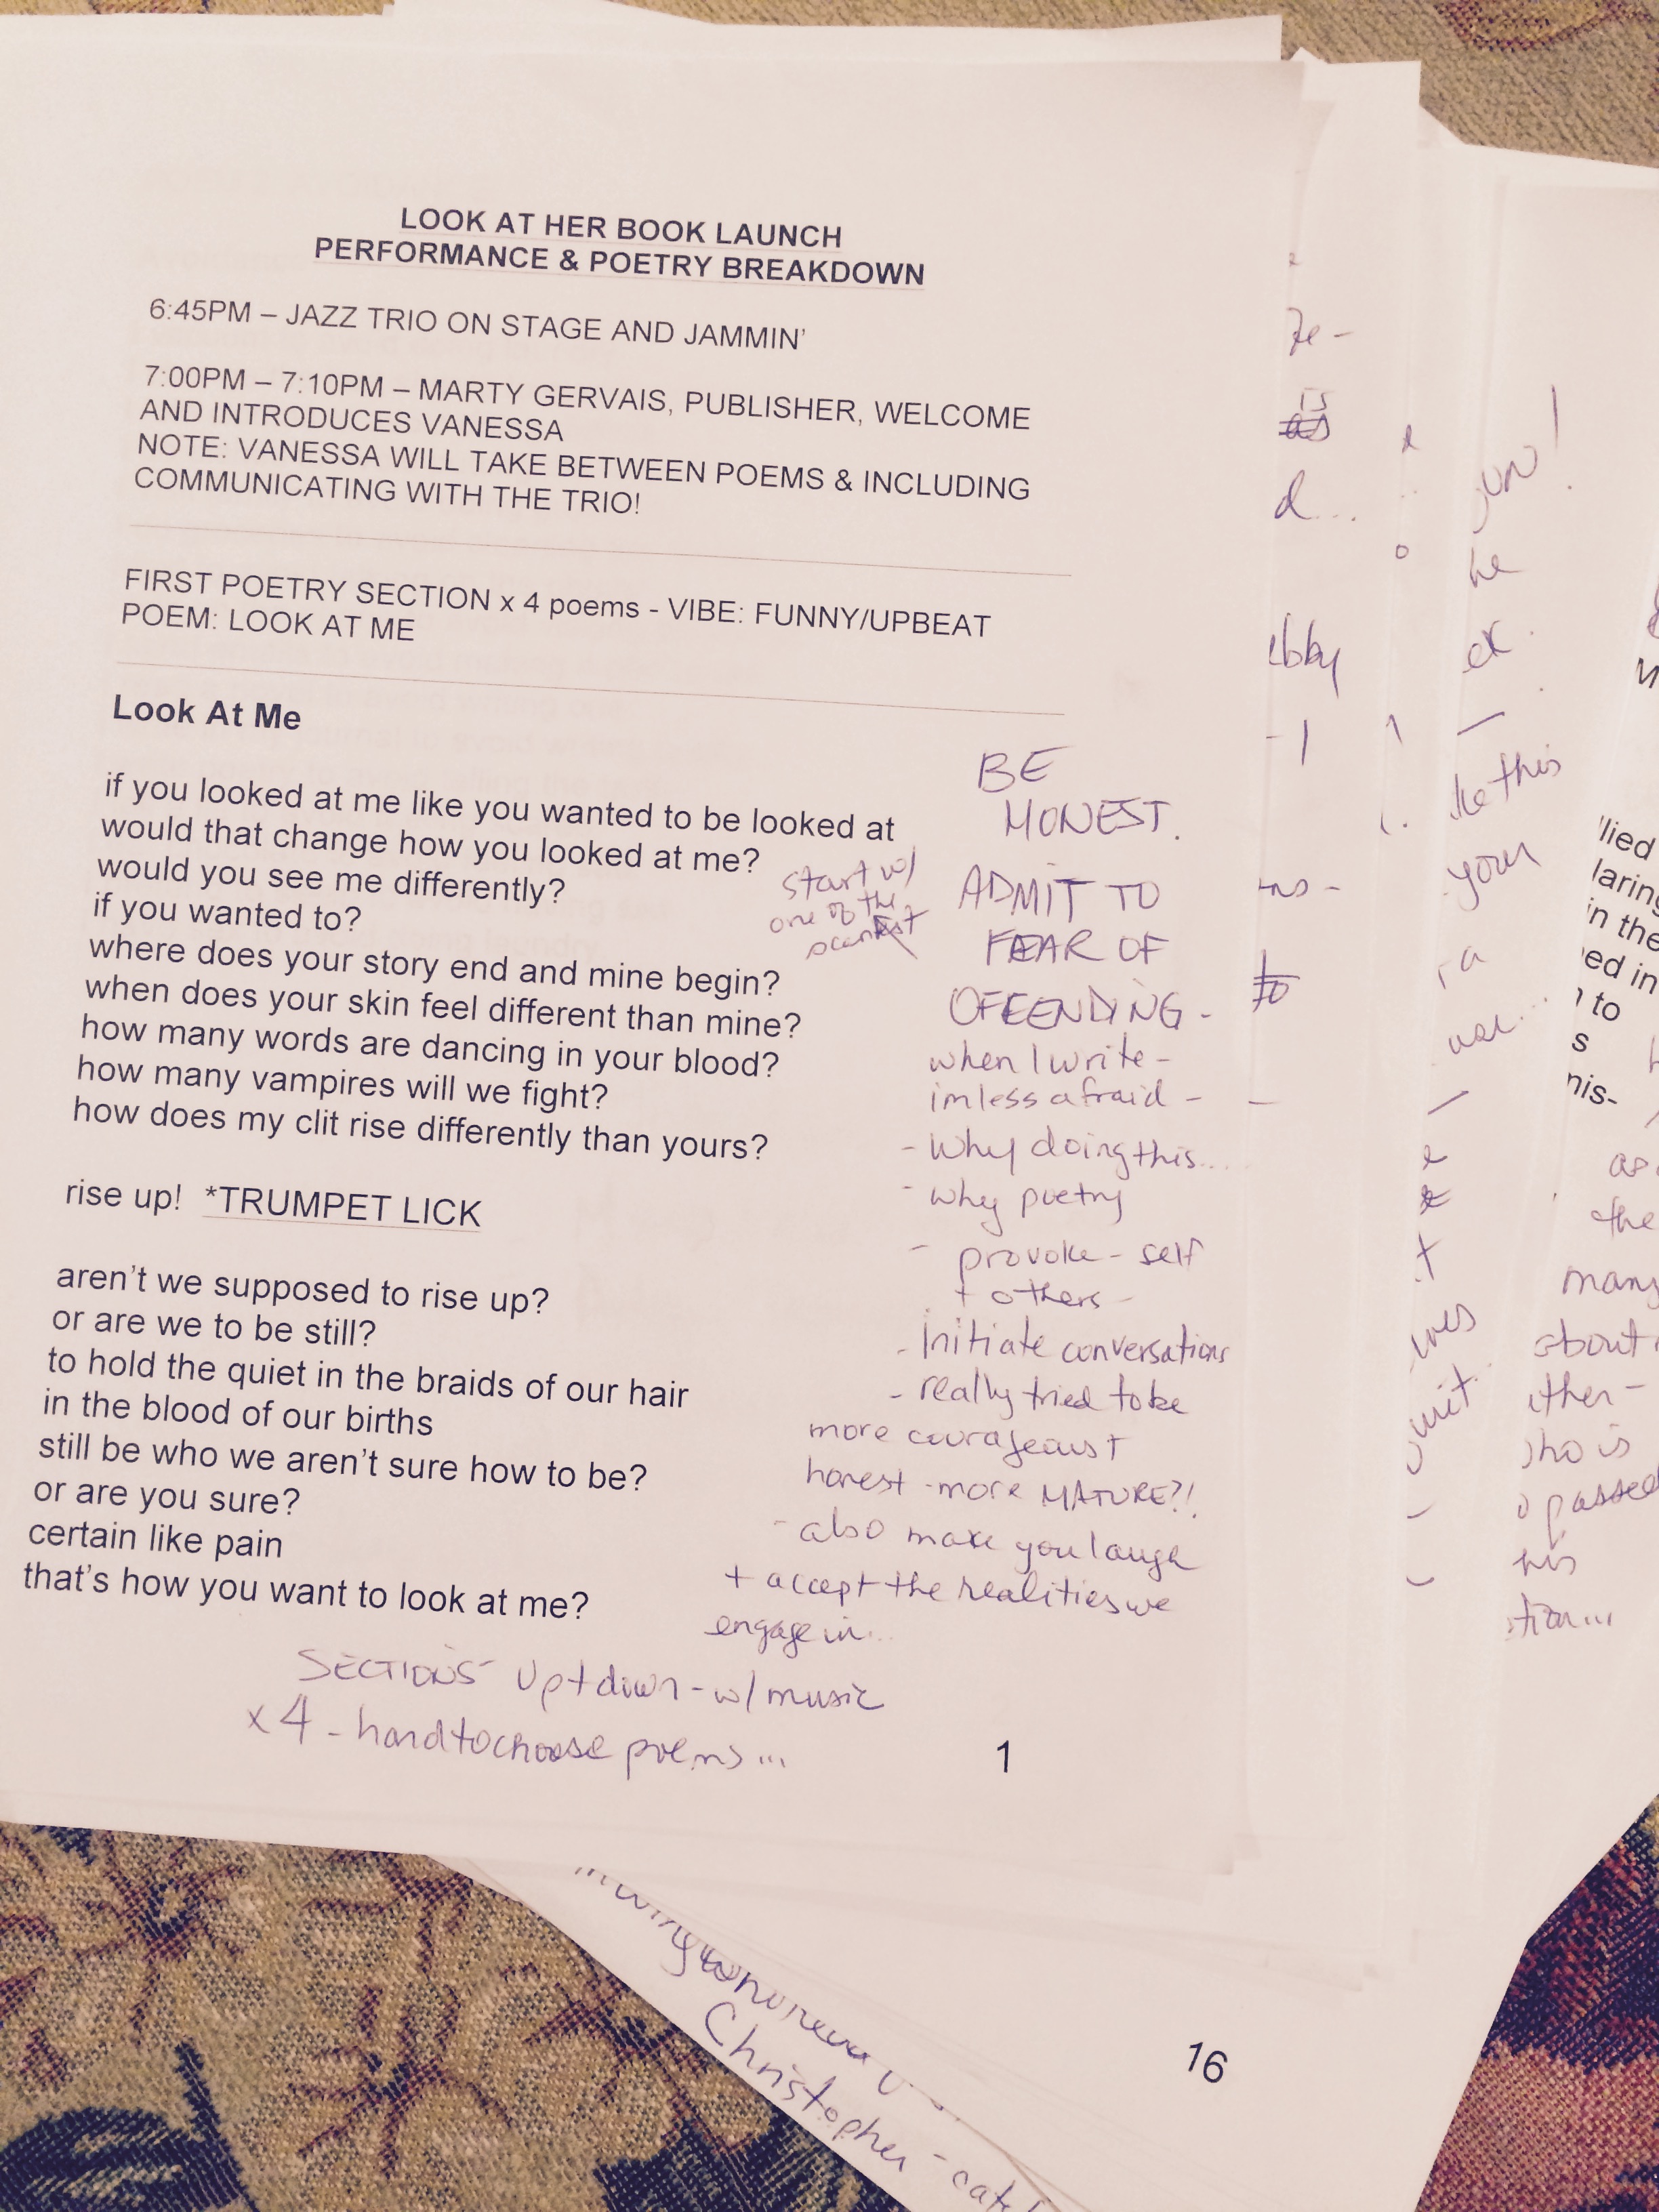 LOOK AT HER BOOK LAUNCH
PERFORMANCE & POETRY BREAKDOWN
6:45PM – JAZZ TRIO ON STAGE AND JAMMIN'
7:00PM – 7:10PM – MARTY GERVAIS, PUBLISHER, WELCOME
AND INTRODUCES VANESSA
NOTE: VANESSA WILL TAKE BETWEEN POEMS & INCLUDING
COMMUNICATING WITH THE TRIO!
FIRST POETRY SECTION x 4 poems - VIBE: FUNNY/UPBEAT
POEM: LOOK AT ME
Look At Me
if you looked at me like you wanted to be looked at
would that change how you looked at me?
would you see me differently?
if you wanted to?
where does your story end and mine begin?
when does your skin feel different than mine?
how many words are dancing in your blood?
how many vampires will we fight?
how does my clit rise differently than yours?
rise up! *TRUMPET LICK
aren't we supposed to rise up?
or are we to be still?
to hold the quiet in the braids of our hair
in the blood of our births
still be who we aren't sure how to be?
or are you sure?
certain like pain
that's how you want to look at me?
start w/
one of the
BE
HONEST.
ADMIT TO
FEAR OF
OFFENDING -
when I write -
im less afraid -
- Why doing this...
- why poetry
- provoke - self
+ others -
- Initiate conversations
- really tried to be
more courageous +
honest - more MATURE?!
- also make you laugh
+ accept the realities we
engage in...
SECTIONS - up + down - w/ music
x 4 - hard to choose poems...
1
is
your
in the
to
the
many
about
his
Christopher -
16